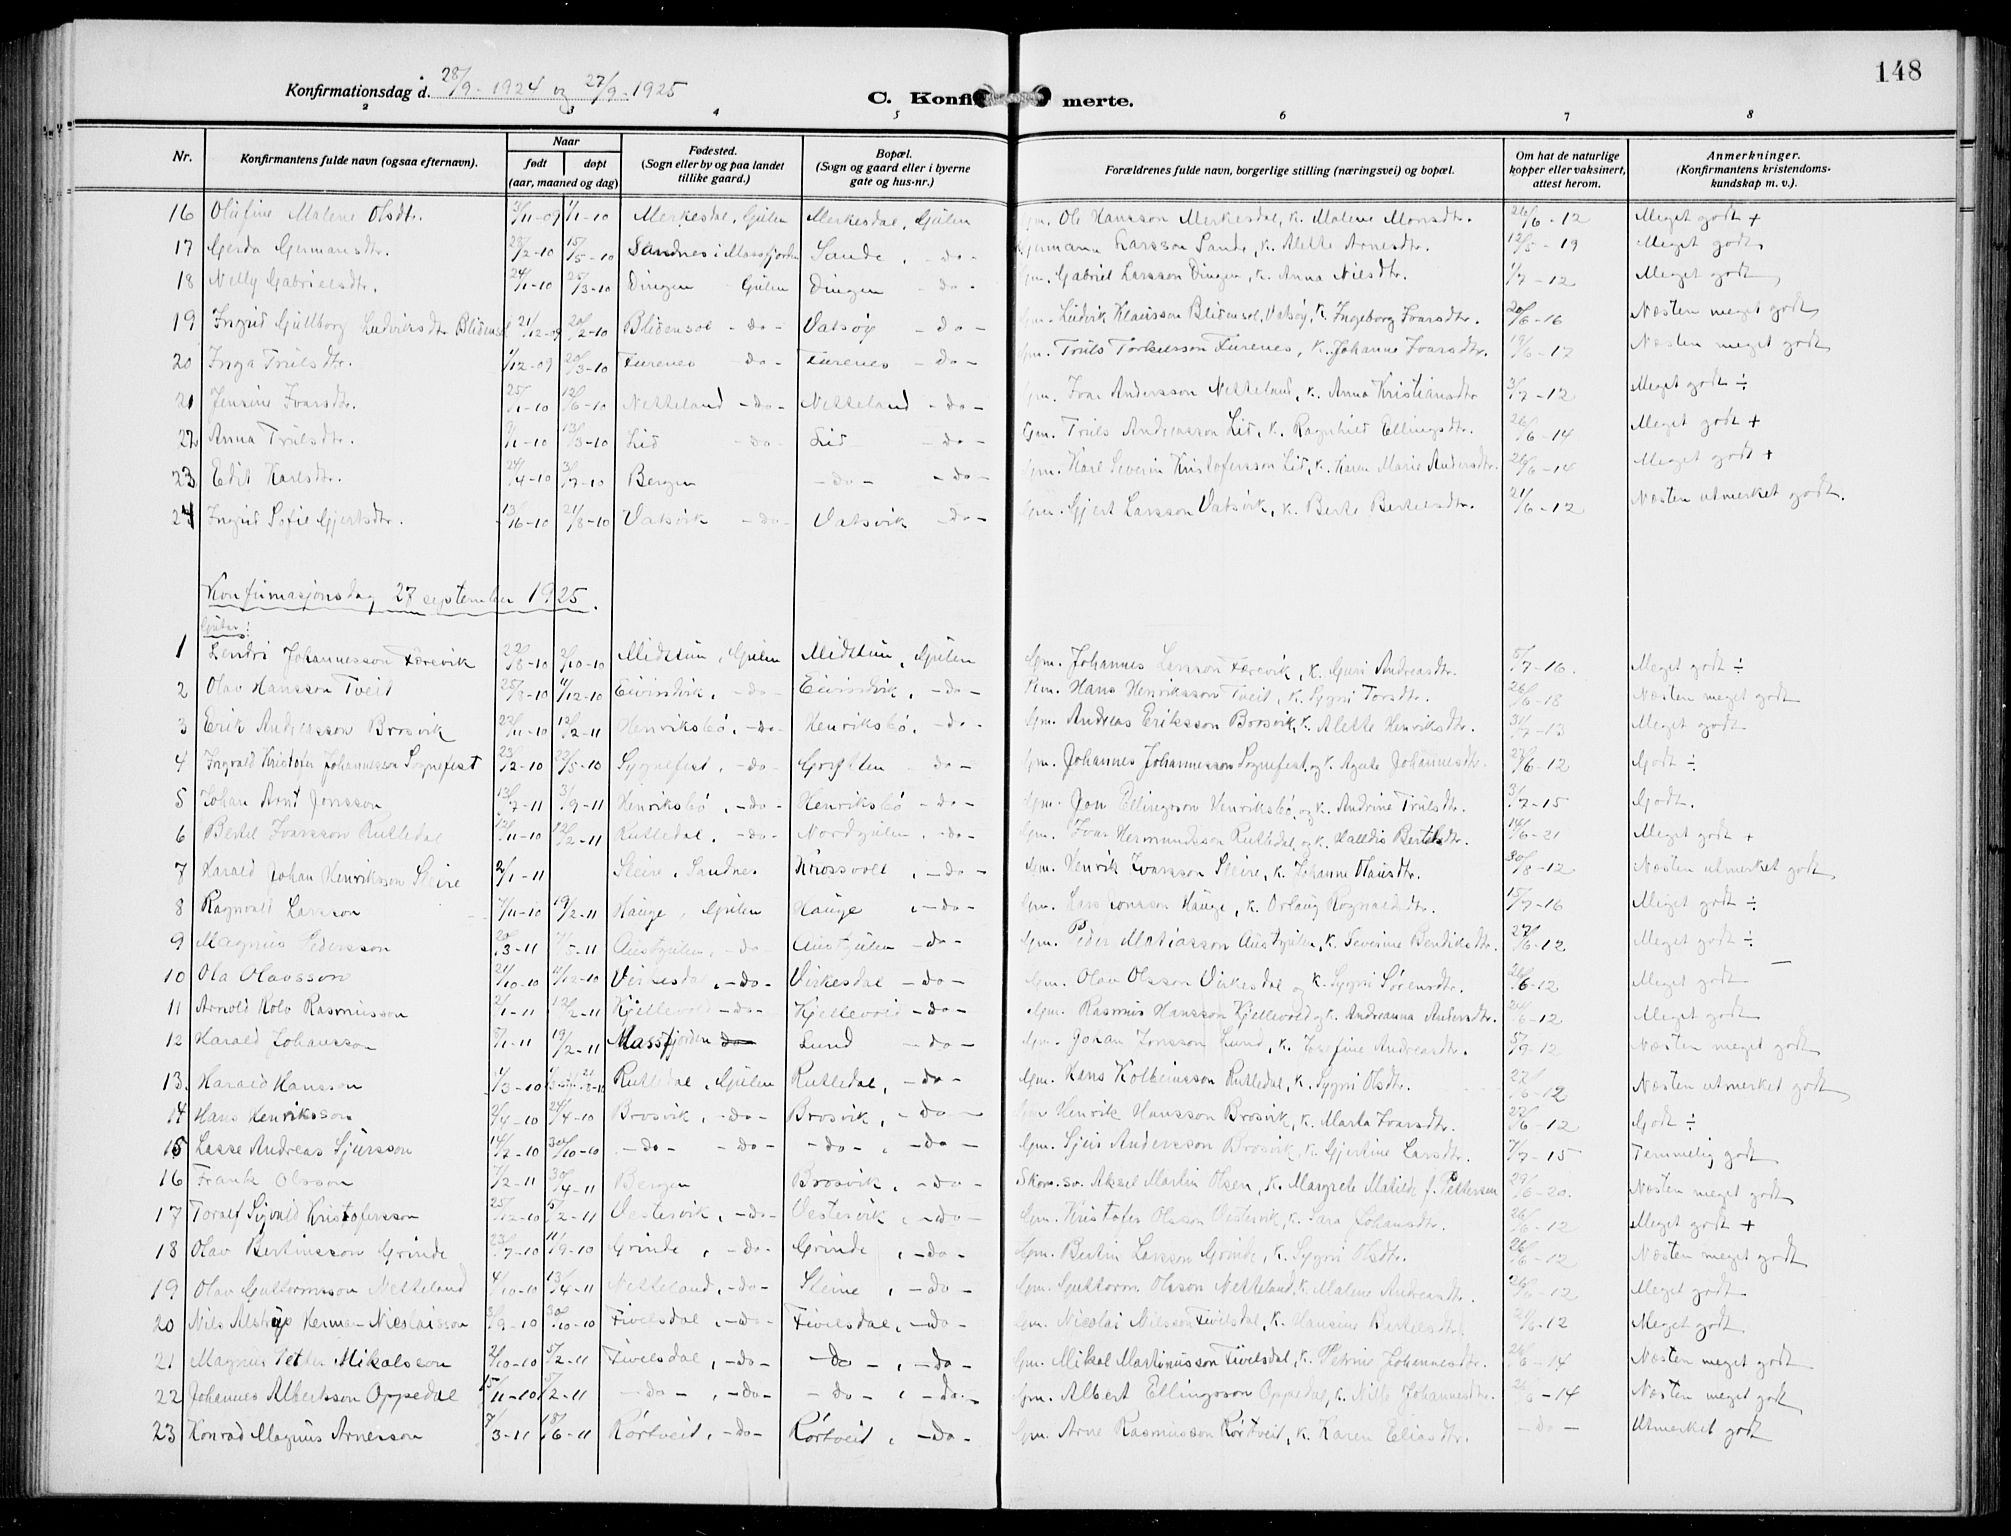 148
Konfirmationsdag d. 28/9 - 1924 og 27/9 - 1925
C. Konfirmerte.
2 3 4 5 6 7 8
Nr. Konfirmantens fulde navn (ogsaa efternavn). Naar født døpt (aar, maaned og dag) Fødested. (Sogn eller by og paa landet tillike gaard.) Bopæl. (Sogn og gaard eller i byerne gate og hus-nr.) Forældrenes fulde navn, borgerlige stilling (næringsvei) og bopæl. Om hat de naturlige kopper eller vaksinert, attest herom. Anmerkninger. (Konfirmantens kristendomskundskap m. v.).
16 Olufine Malene Olsdtr. 3/11-09 1/1-10 Merkesdal, Gulen Merkesdal, Gulen Gm. Ole Hansson Merkesdal, K. Malene Monsdtr. 26/6-12 Meget godt +
17 Gerda Germansdtr. 23/2-10 15/5-10 Sandnes i Massfjorden Sande, -do- Germann Larsson Sande, K. Alette Arnesdtr. 12/5-19 Meget godt
18 Nelly Gabrielsdtr. 24/1-10 25/3-10 Dingen - Gulen Dingen -do- Gm. Gabriel Larsson Dingen, K. Anna Nilsdtr. 1/7-12 Meget godt
19 Ingrid Gullborg Ludviksdtr. Blidensol 21/12-09 20/2-10 Blidensol -do- Vatsøy -do- Gm. Ludvik Klausson Blidensol, Vatsøy, K. Ingeborg Ivarsdtr. 20/6-16 Næsten meget godt
20 Inga Trulsdtr. 1/12-09 20/3-10 Furenes -do- Furenes -do- Gm. Truls Torkelsson Furenes, K. Johanne Ivarsdtr. 19/6-17 Næsten meget godt
21 Jensine Ivarsdtr. 25/1-10 12/6-10 Netteland -do- Netteland -do- Gm. Ivar Andersson Netteland, K. Anna Kristiansdtr 3/7-12 Meget godt ÷
22 Anna Trulsdtr. 9/1-10 13/3-10 Lid -do- Lid -do- Gm. Truls Andreasson Lid, K. Ragnhild Ellingsdtr. 26/6-14 Meget godt +
23 Edit Karlsdtr. 24/4-10 3/7-10 Bergen -do- -do- Gm. Karl Severin Kristofersson Lid, K. Karen Marie Andersdtr. 26/6-14 Meget godt +
24 Ingrid Sofie Gjertsdtr. 13/16-10 21/8-10 Vatsvik -do- Vatsvik -do- Gm. Gjert Larsson Vatsvik, K. Berte Bertelsdtr. 21/6-12 Næsten utmerket godt.
Konfirmasjonsdag 27 september 1925.
Guter:
1 Sendri Johannesson Færevik 22/8-10 2/10-10 Midttun, Gulen Midttun, Gulen Gm. Johannes Larsson Færevik, K. Guri Andreasdtr. 5/7-16. Meget godt ÷
2 Olav Hansson Tveit 25/8-10 11/12-10 Eivindvik, -do- Eivindvik, -do- Hans Henriksson Tveit, K. Sygni Torsdtr. 26/6-18 Næsten meget godt
3 Erik Andreasson Brosvik 22/11-10 12/2-11 Henriksbø, -do- Henriksbø, -do- Gm. Andreas Eriksson Brosvik, K. Alette Henriksdtr. 31/7-13 Meget godt
4 Ingvald Kristofer Johannesson Sognefest 23/2-10 22/5-10 Sygnefest, -do- -do- Gm. Johannes Johannesson Sognefest, og K. Agate Johannesdtr. 27/6-12 Godt ÷
5 Johan Arnt Jonsson 13/7-11 3/9-11 Henriksbø, -do- Henriksbø -do- Gm. Jon Ellingsson Henriksbø, og K. Andrine Trulsdtr. 3/7-15 Godt.
6 Bertel Ivarsson Rutledal 12/11-10 12/2-11 Rutledal, -do- Nordgulen, -do- Gm. Ivar Hermundsson Rutledal, og K. Halldis Bertelsdtr. 14/6-21 Meget godt +
7 Harald Johan Henriksson Sleire 2/1-11 Sleire, Sandnes Krossvoll, -do- Gm. Henrik Ivarsson Sleire, K. Johanne Olausdtr. 30/8-12 Næsten utmerket godt
8 Ragnvald Larsson 7/11-10 19/2-11 Hauge, Gulen Hauge, -do- Gm. Lars Jonsson Hauge, K. Orlaug Rognaldsdtr. 15/7-16 Meget godt ÷
9 Magnus Pedersson 20/3-11 7/5-11 Austgulen, -do Austgulen -do- Gm. Peder Matiasson Austgulen, K. Severine Bendiksdtr. 27/6-12 Meget godt ÷
10 Ola Olavsson 21/10-10 11/12-10 Virkesdal, -do- Virkesdal -do- Gm. Olav Olsson Virkesdal og K. Sygni Sørensdtr. 26/6-12 Meget godt
11 Arnold Kolv Rasmusson 2/1-11 12/2-11 Kjellevold -do- Kjellevold -do- Gm. Rasmus Hansson Kjellevold, og K. Andreanna Andersdtr. 24/6-12 Meget godt
12 Harald Johansson 5/1-11 19/2-11 Massfjorden do Lund -do- Gm. Johan Jonsson Lund, K. Josefine Andreasdtr. 5/9-12 Næsten meget godt
13. Harald Hansson 1/3-10 Rutledal, Gulen Rutledal, -do- Gm. Hans Kolbeinsson Rutledal, K. Sygni Olsdtr. 27/6-12 Næsten utmerket godt
14 Hans Henriksson 2/4-10 24/4-10 Brosvik, -do- Brosvik, -do- Gm Henrik Hansson Brosvik, K. Marta Ivarsdtr. 22/6-12 Godt ÷
15 Lasse Andreas Sjursson 14/7-10 30/10-10 -do- -do- -do-, -do- Gm. Sjur Andersson Brosvik, K. Gjertine Larsdtr. 7/7-15 Temmelig godt
16 Frank Olsson 7/2-11 30/4-11 Bergen Brosvik, -do- Skom. sv. Aksel Martin Olsen, K. Margrete Matilde f. Pettersen 29/6-20. Næsten meget godt
17 Toralf Sigvald Kristofersson 25/12-10 5/2-11 Vestervik, -do- Vestervik, -do- Gm. Kristofer Olsson Vestervik, K. Sara Johansdtr. 26/6-12 Meget godt +
18 Olav Bertinsson Grinde 23/7-10 11/9-10 Grinde, -do- Grinde, -do- Gm. Bertin Larsson Grinde, K. Sygni Olsdtr. 26/6-12 Næsten meget godt
19 Olav Guttormsson Netteland 4/10-10 13/4-11 Netteland, -do- Steine, -do- Gm. Guttorm Olsson Netteland, K. Malene Andreasdtr. 26/6-12 Meget godt
20 Nils Alstrup Herman Nicolaisson 3/9-10 30/10-10 Fivelsdal, -do- Fivelsdal, -do- Gm. Nicolai Nilsson Fivelsdal, K. Hansine Bertelsdtr. 21/6-12 Meget godt
21 Magnus Petter Mikalsson 2/10-10 5/2-11 Fivelsdal, -do- -do-, -do- Gm. Mikal Martinusson Fivelsdal, K. Petrine Johannesdtr. 26/6-14 Næsten meget godt
22 Johannes Albertsson Oppedal 15/11-10 5/2-11 -do-, -do- -do-, -do- Gm. Albert Ellingsson Oppedal, K. Nille Johannesdtr. 26/6-14 Næsten meget godt
23 Konrad Magnus Arnesson 7/3-11 18/6-11 Rørtveit, -do- Rørtveit, -do- Gm. Arne Rasmusson Rørtveit, K. Karen Eliasdtr. -do- Utmerket godt